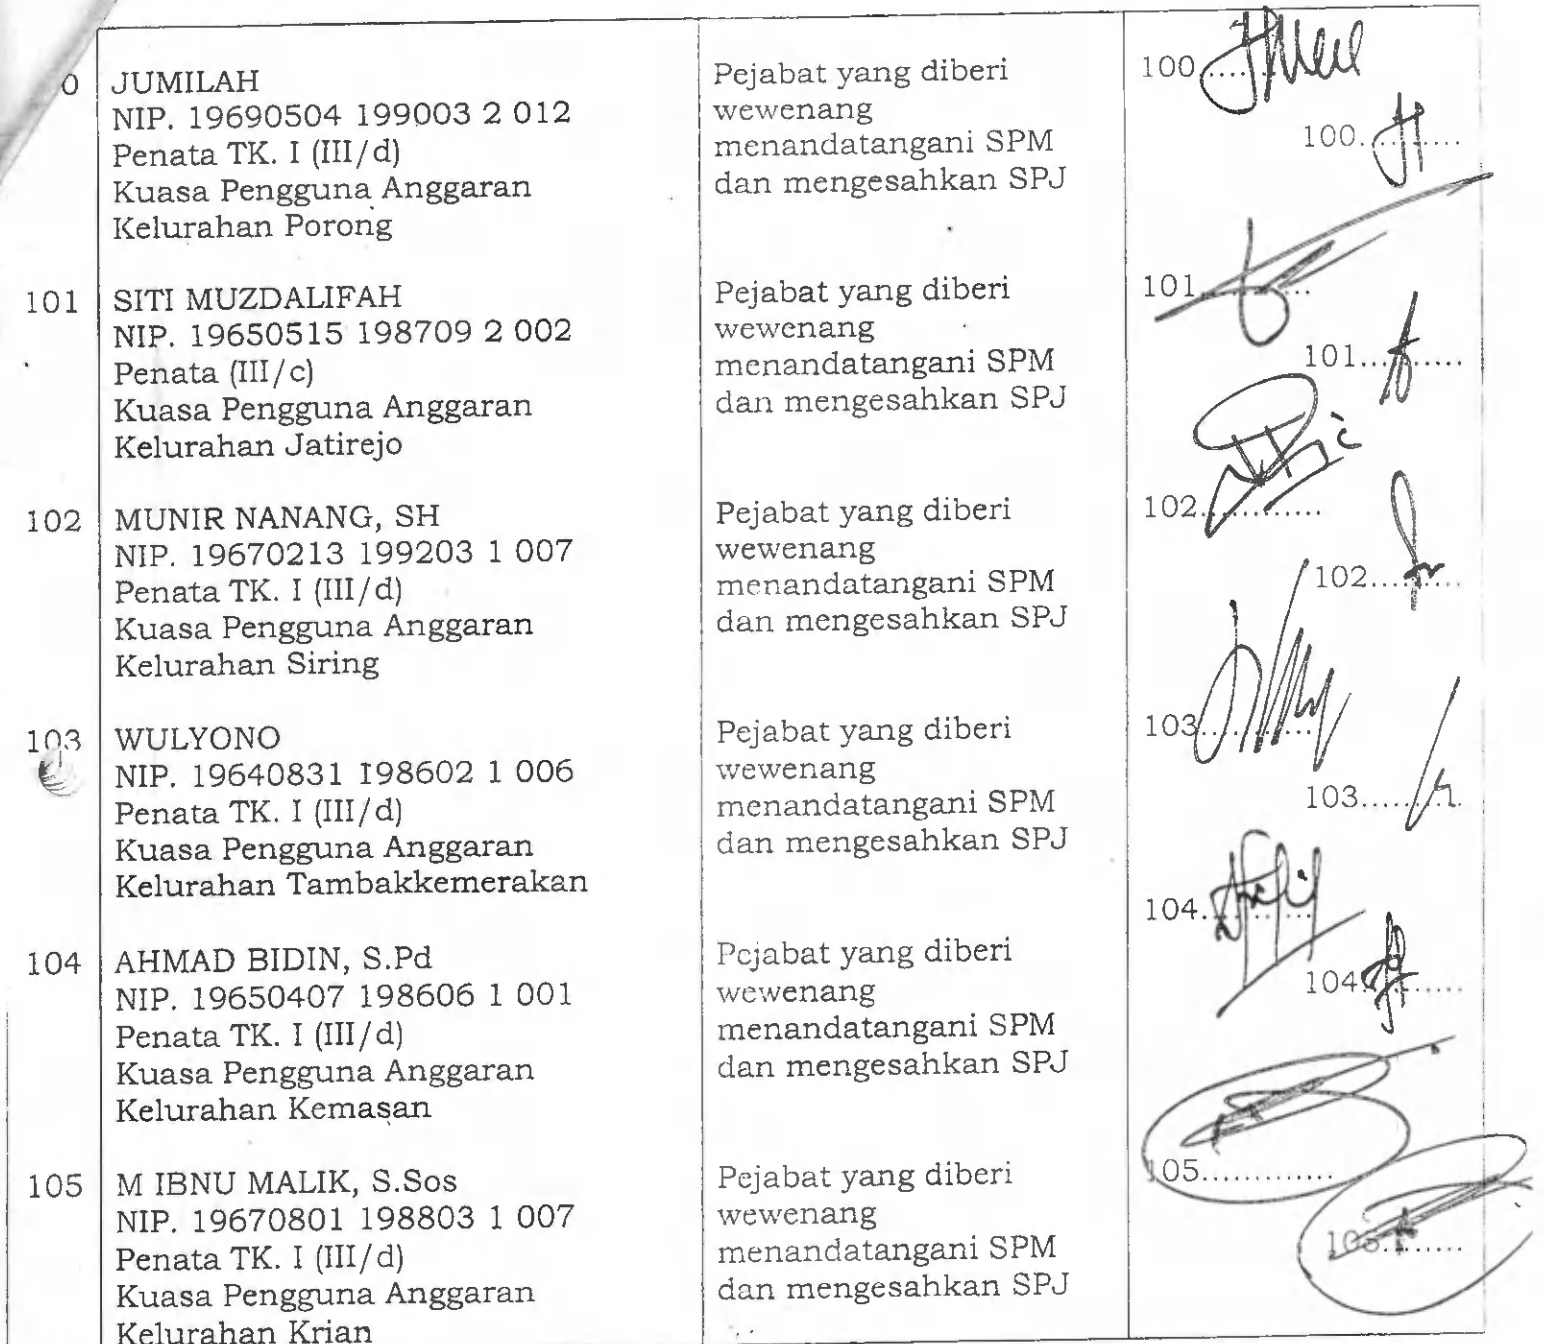 0 JUMILAH
NIP. 19690504 199003 2 012
Penata TK. I (III/d)
Kuasa Pengguna Anggaran
Kelurahan Porong
Pejabat yang diberi
wewenang
menandatangani SPM
dan mengesahkan SPJ
100..........
100..........
101 SITI MUZDALIFAH
NIP. 19650515 198709 2 002
Penata (III/c)
Kuasa Pengguna Anggaran
Kelurahan Jatirejo
Pejabat yang diberi
wewenang
menandatangani SPM
dan mengesahkan SPJ
101..........
101..........
102 MUNIR NANANG, SH
NIP. 19670213 199203 1 007
Penata TK. I (III/d)
Kuasa Pengguna Anggaran
Kelurahan Siring
Pejabat yang diberi
wewenang
menandatangani SPM
dan mengesahkan SPJ
102............
102..........
103 WULYONO
NIP. 19640831 198602 1 006
Penata TK. I (III/d)
Kuasa Pengguna Anggaran
Kelurahan Tambakkemerakan
Pejabat yang diberi
wewenang
menandatangani SPM
dan mengesahkan SPJ
103...........
103..........
104 AHMAD BIDIN, S.Pd
NIP. 19650407 198606 1 001
Penata TK. I (III/d)
Kuasa Pengguna Anggaran
Kelurahan Kemasan
Pejabat yang diberi
wewenang
menandatangani SPM
dan mengesahkan SPJ
104...........
104..........
105 M IBNU MALIK, S.Sos
NIP. 19670801 198803 1 007
Penata TK. I (III/d)
Kuasa Pengguna Anggaran
Kelurahan Krian
Pejabat yang diberi
wewenang
menandatangani SPM
dan mengesahkan SPJ
105.............
105.........